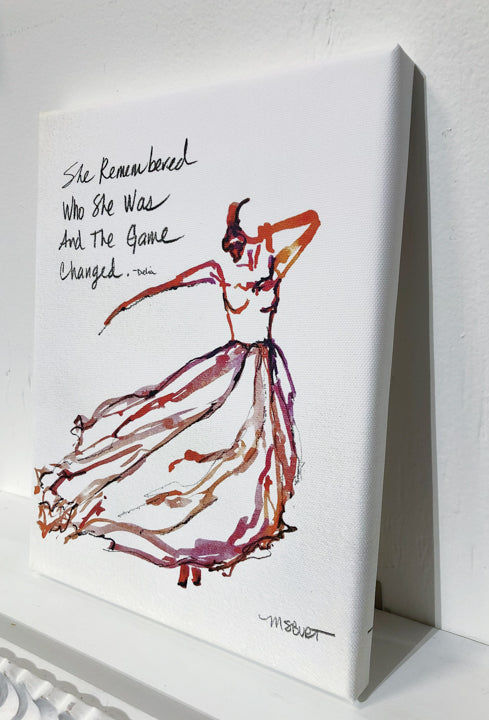 She Remembered
Who She Was
And The Game
Changed. -Delia
MSBURT